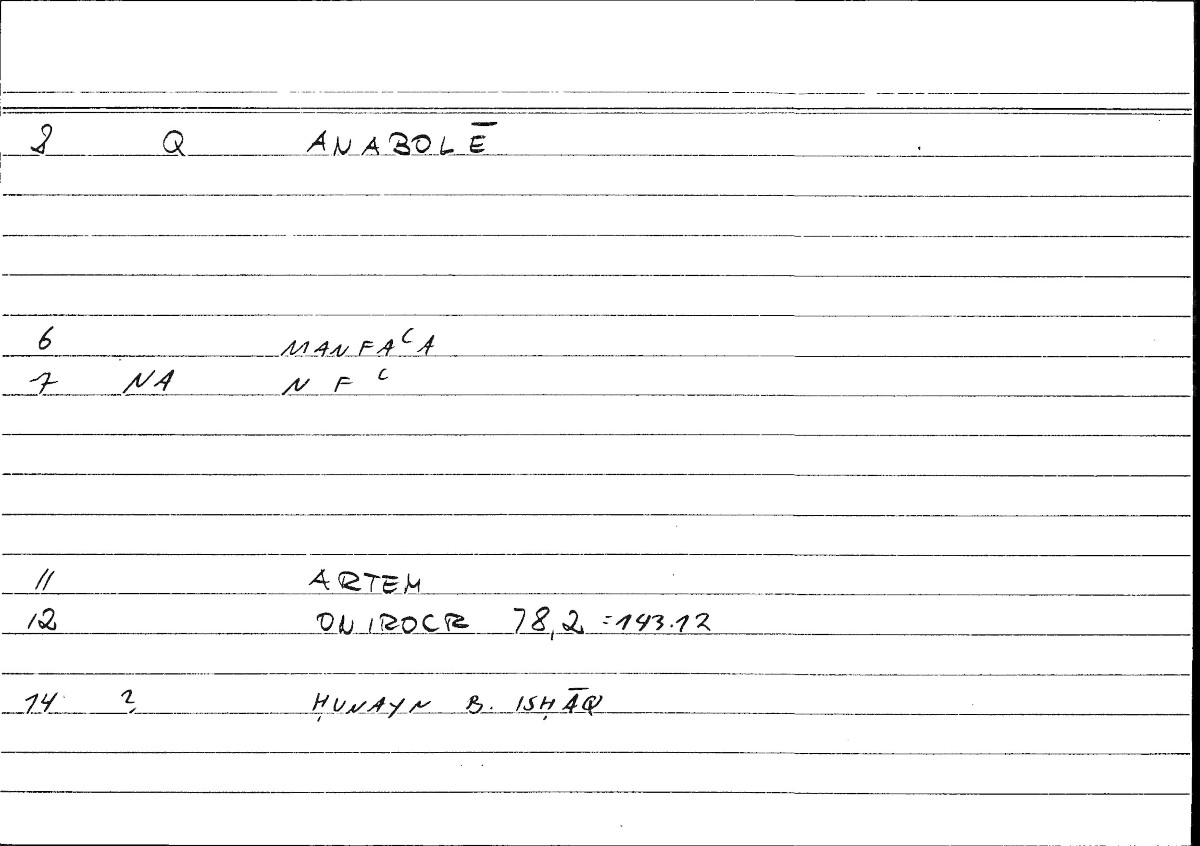 8 Q ANABOLĒ
6 MANFAʿA
7 NA N F ʿ
11 ARTEM
12 ONIROCR 78,2 =143.12
14 ? ḤUNAYN B. ISḤĀQ